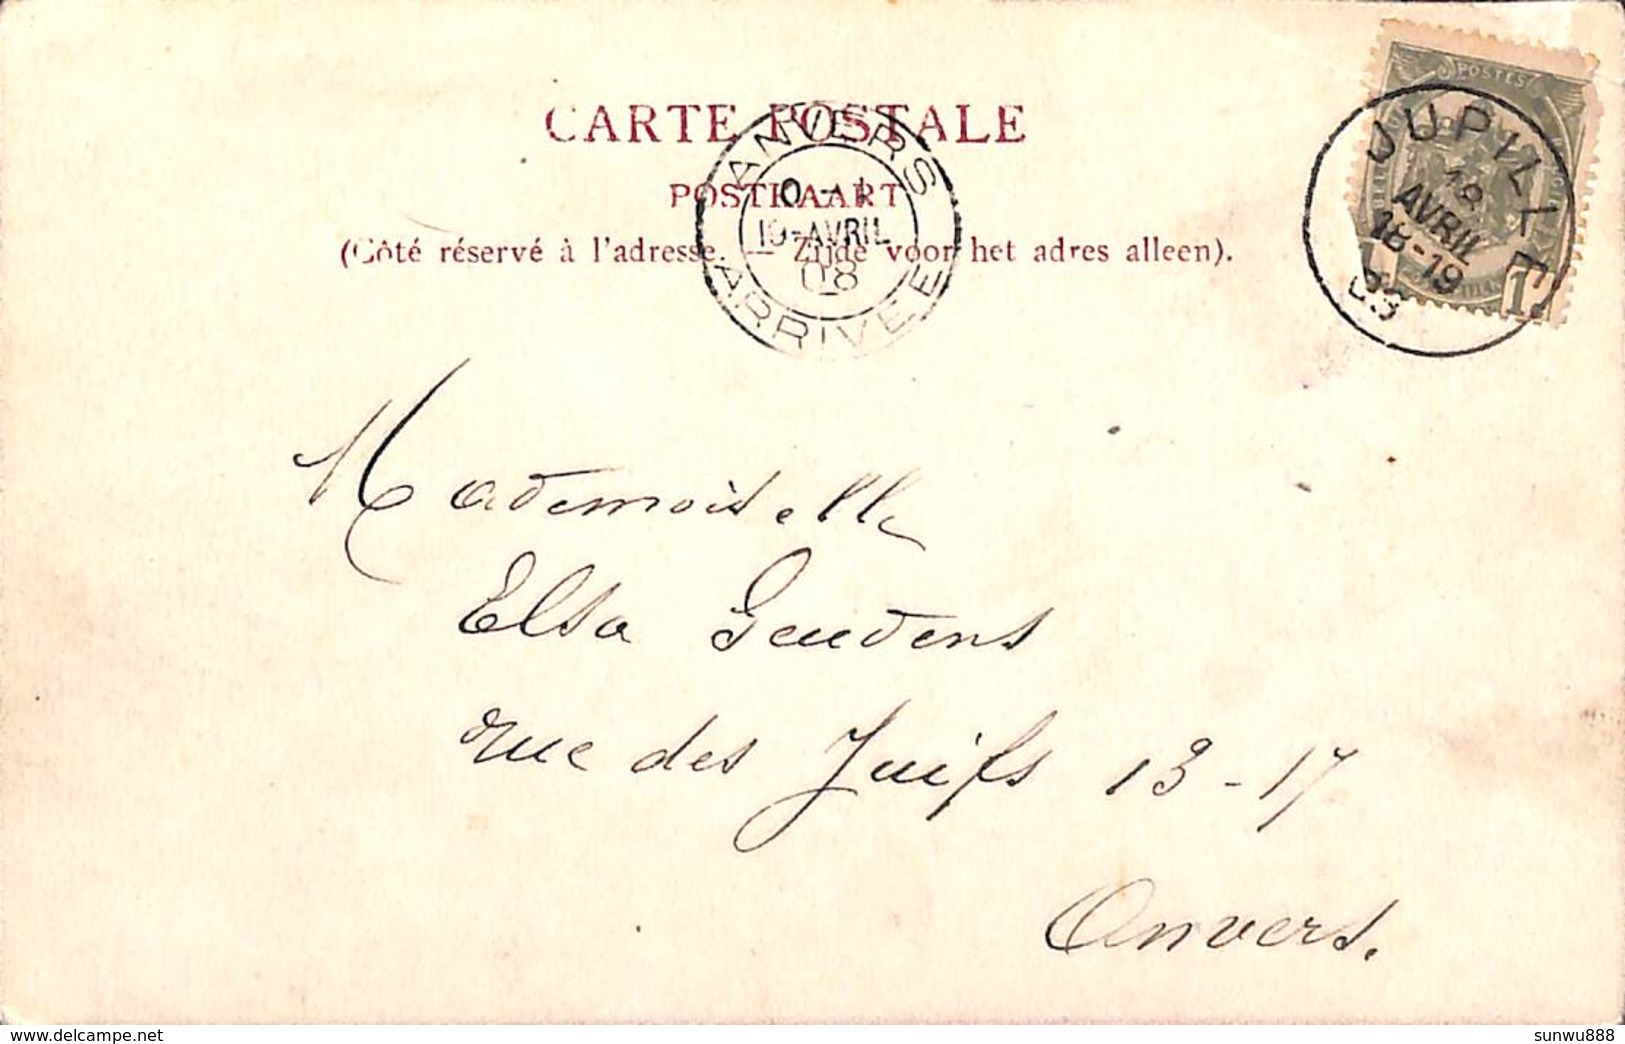 CARTE POSTALE
POSTKAART
(Côté réservé à l'adresse. — Zijde voor het adres alleen).
ANVERS
10-AVRIL
08
ARRIVEE
POSTES
JUPILLE
AVRIL
18-19
1
Mademoiselle
Elsa Geudens
rue des Juifs 13-17
Anvers.
https://www.delcampe.net
sunwu888